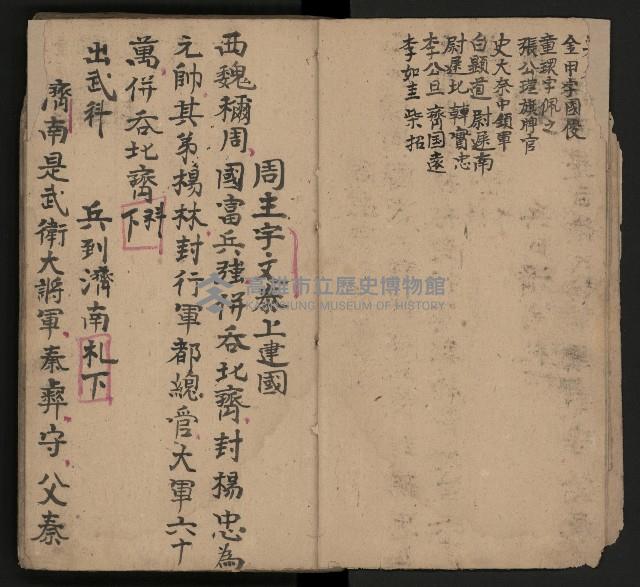 金甲字國俊
童環字佩之
張公瑾旗牌官
史大奈中領軍
白顯道 尉遲南
尉遲北 韓實忠
李公旦 齊国遠
李如圭 柴招
周主字文泰上建國
西魏稱周國富兵強併吞北齊封楊忠為
元帥其弟楊林封行軍都總管大軍六十
萬併吞北齊 科下
出武科 兵到濟南 札下
濟南是武衛大將軍秦彝守父秦
高雄市立歷史博物館
KAOHSIUNG MUSEUM OF HISTORY